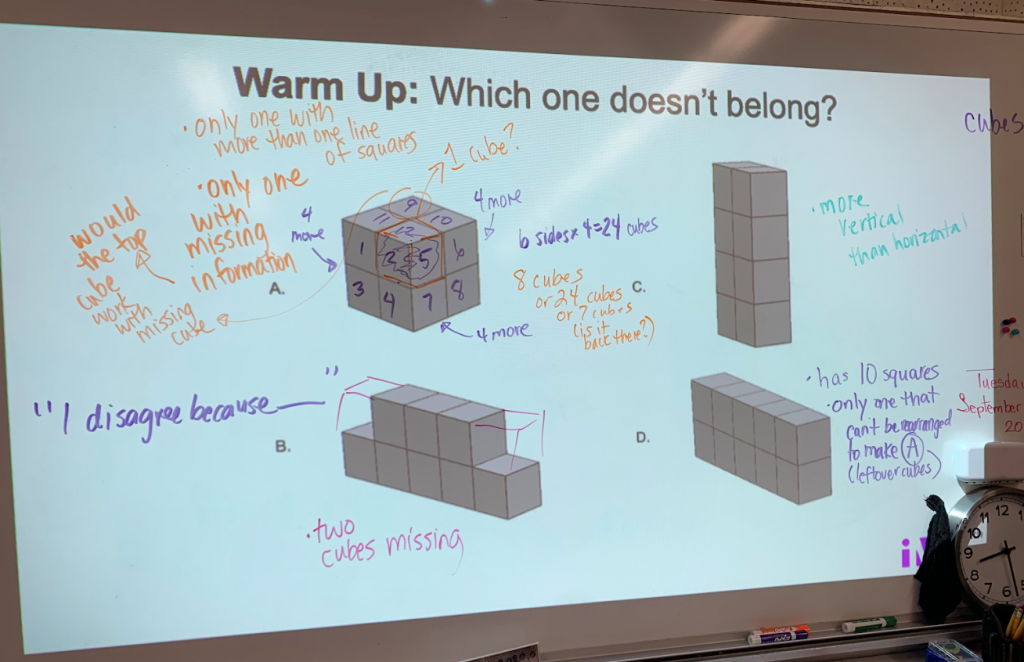 Warm Up: Which one doesn't belong?
• only one with
more than one line
of squares
1 cube?
• only one
with
missing
information
would
the top
cube
work
with
missing
cube
4
more
4 more
6 sides x 4 = 24 cubes
A.
9
11
10
12
1
2
5
6
3
4
7
8
8 cubes
or 24 cubes
or 7 cubes
(is it
back there?)
4 more
C.
• more
vertical
than horizontal
cubes
"I disagree because— "
B.
• two
cubes missing
D.
• has 10 squares
• only one that
can't be rearranged
to make A
(leftover cubes)
Tuesda
September
20
11 12 1
10
9
8
7 6